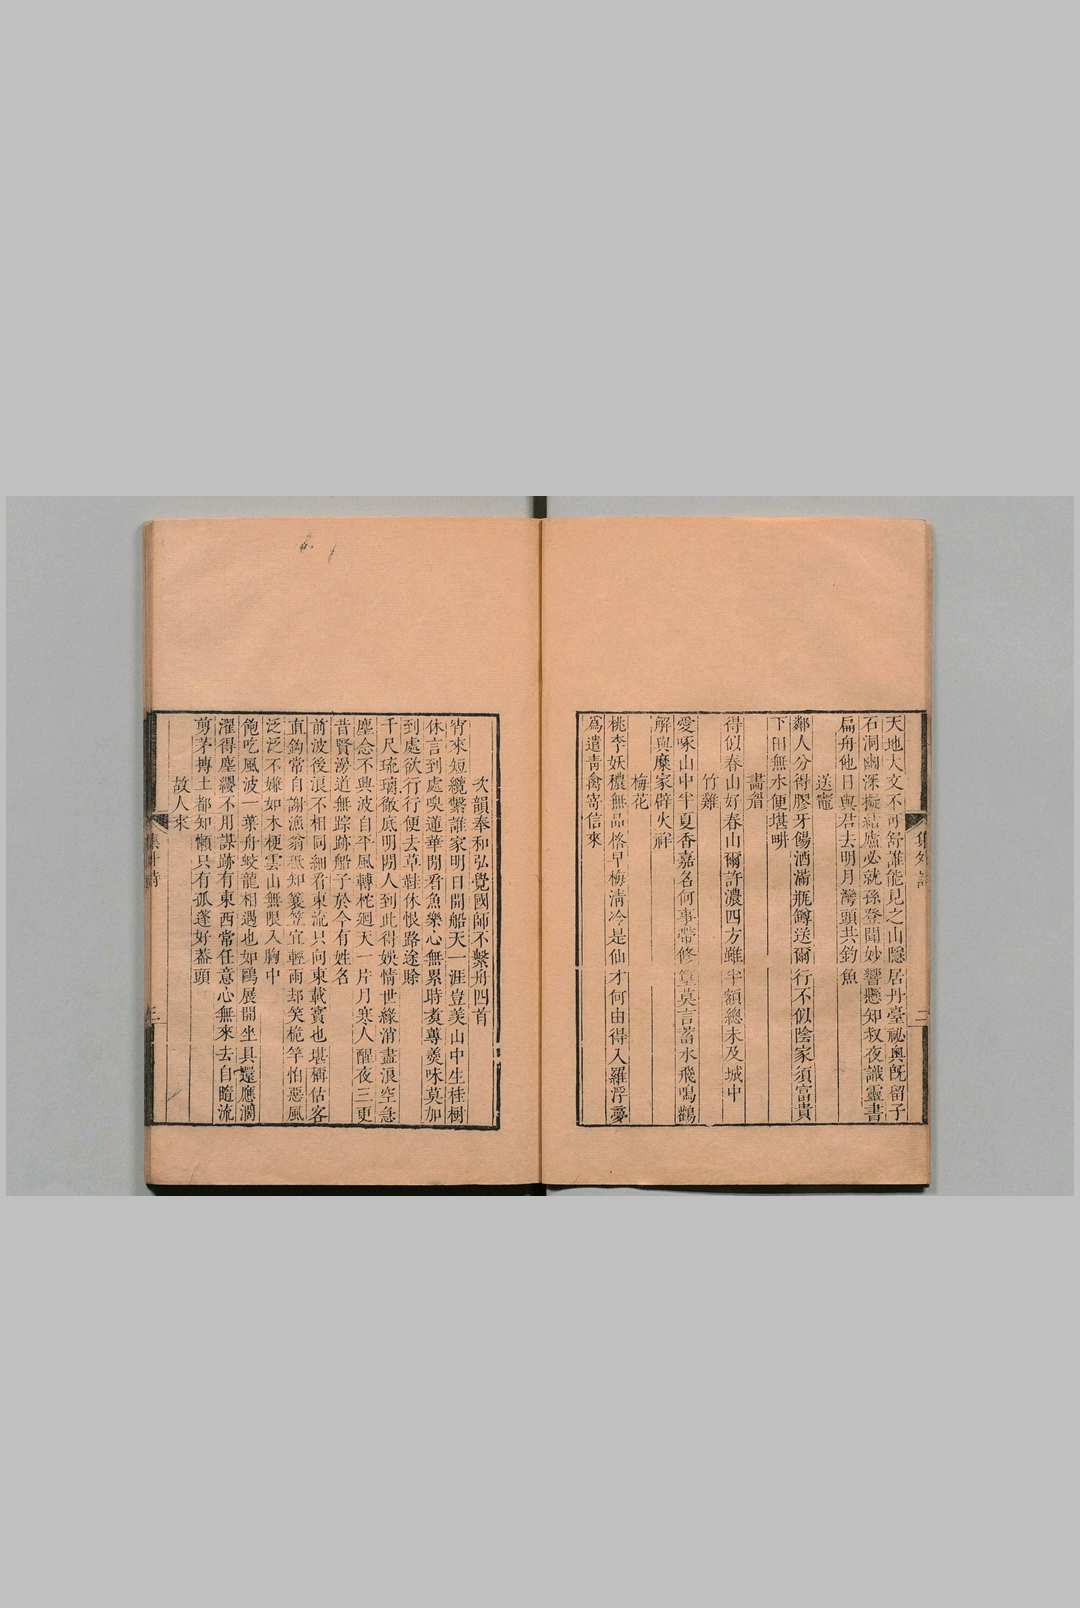 天地大文不可舒誰能見之山隱居丹臺祕奧旣留子
石洞幽深擬結廬必就孫登聞妙響懸知叔夜識靈書
扁舟他日與君去明月灣頭共釣魚
送竈
鄰人分得膠牙餳酒滿瓶罇送爾行不似陰家須富貴
下田無水便堪畊
畫眉
得似春山好春山爾許濃四方雖半額總未及城中
竹雞
愛啄山中半夏香嘉名何事帶修篁莫言蓄水飛鳴鸛
解與糜家辟火祥
梅花
桃李妖穠無品格早梅淸冷是仙才何由得入羅浮夢
爲遣靑禽寄信來
集外詩
二
次韻奉和弘覺國師不繫舟四首
宵來短纜繫誰家明日開船天一涯豈羨山中生桂樹
休言到處嗅蓮華閒看魚樂心無累時煑蓴羹味莫加
到處欲行行便去草鞋休恨路途賒
千尺琉璃徹底明閒人到此得娛情世緣消盡浪空急
塵念不興波自平風轉柁廻天一片月寒人醒夜三更
昔賢漫道無踪跡船子於今有姓名
前波後浪不相同細看東流只向東載寶也堪稱估客
直鈎常自謝漁翁秪知簑笠宜輕雨却笑桅竿怕惡風
泛泛不嫌如木梗雲山無限入胸中
飽吃風波一葉舟蛟龍相遇也如鷗展開坐具還應濶
濯得塵纓不用謀跡有東西常任意心無來去自隨流
剪茅搏土都知懶只有孤蓬好葢頭
故人來
集外詩
三